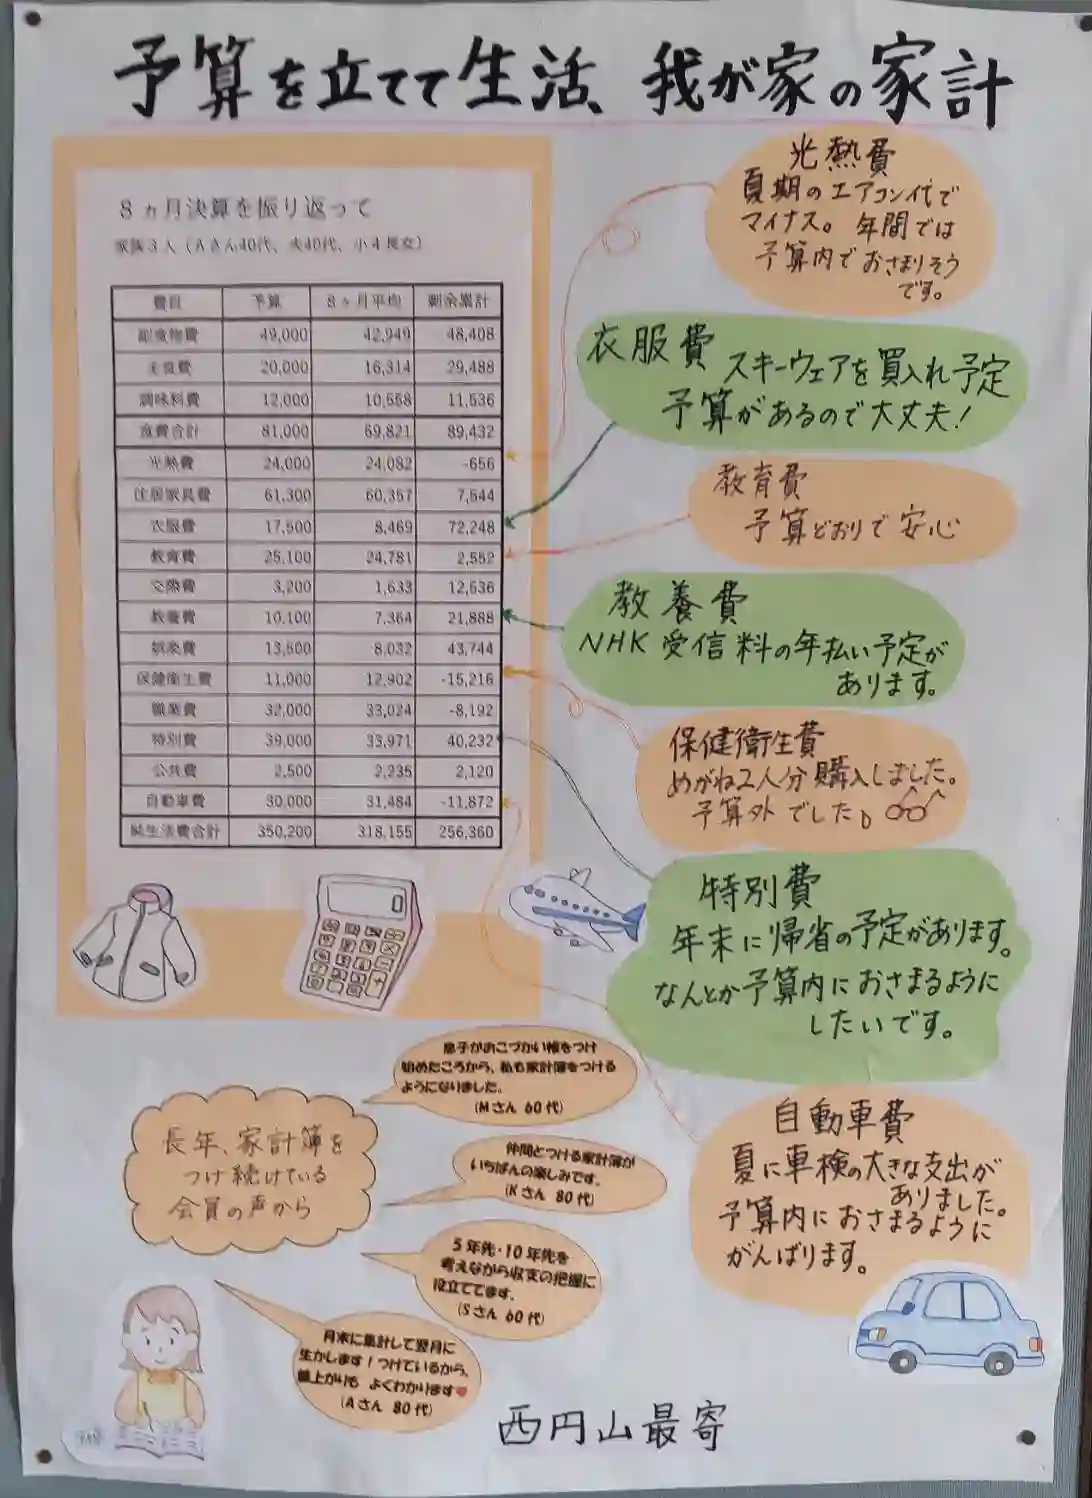 予算を立てて生活、我が家の家計
8ヵ月決算を振り返って
家族3人（Aさん40代、夫40代、小4長女）
費目 予算 8ヶ月平均 剰余累計
副食物費 49,000 42,949 48,408
主食費 20,000 16,314 29,488
調味料費 12,000 10,558 11,536
食費合計 81,000 69,821 89,432
光熱費 24,000 24,082 -656
住居家具費 61,300 60,357 7,544
衣服費 17,500 8,469 72,248
教育費 25,100 24,781 2,552
交際費 3,200 1,633 12,536
教養費 10,100 7,364 21,888
娯楽費 13,500 8,032 43,744
保健衛生費 11,000 12,902 -15,216
職業費 32,000 33,024 -8,192
特別費 39,000 33,971 40,232
公共費 2,500 2,235 2,120
自動車費 30,000 31,484 -11,872
純生活費合計 350,200 318,155 256,360
光熱費
夏期のエアコン代で
マイナス。年間では
予算内でおさまりそう
です。
衣服費 スキーウェアを買入れ予定
予算があるので大丈夫！
教育費
予算どおりで安心
教養費
NHK受信料の年払い予定が
あります。
保健衛生費
めがね2人分購入しました。
予算外でした。
特別費
年末に帰省の予定があります。
なんとか予算内におさまるように
したいです。
自動車費
夏に車検の大きな支出が
ありました。
予算内におさまるように
がんばります。
長年、家計簿を
つけ続けている
会員の声から
息子がおこづかい帳をつけ
始めたころから、私も家計簿をつける
ようになりました。
（Mさん 60代）
仲間とつける家計簿が
いちばんの楽しみです。
（Kさん 80代）
5年先・10年先を
考えながら収支の把握に
役立ててます。
（Sさん 60代）
月末に集計して翌月に
生かします！つけているから、
値上がりも よくわかります♥
（Aさん 80代）
西円山最寄